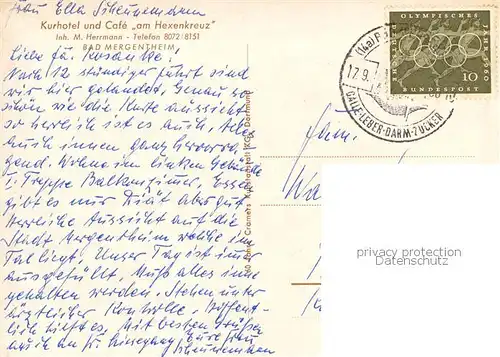 Frau Ella Scheunemann
Kurhotel und Café „am Hexenkreuz"
Inh. M. Herrmann - Telefon 8072/8151
BAD MERGENTHEIM
Liebe Fr. Kosanke.
Nach 12 stündiger fahrt sind
wir hier gelandet. Genau so
schön wie die Karte aussieht
so herrlich ist es auch
auch innen ganz hervorra-
gend. Wohne im linken Gebäude
I. Treppe Balkonzimmer. Essen
gibt es nur Diät aber gut
Herrliche Aussicht auf die
Stadt Mergentheim welche im
Tal liegt. Unser Tag ist immer
ausgefüllt. Muß alles inne
gehalten werden. Stehen unter
ärztlicher Kontrolle. Hoffent-
lich hilft es. Mit besten Grüßen
auch an Fr. Eure Frau
Scheunemann
60 Jahre Cramers Kunstanstalt KG, Dortmund
(14a)
17.9.
GALLE-LEBER-DARM-ZUCKER
OLYMPISCHE
JAHR 1960
10
DEUTSCHE BUNDESPOST
privacy protection
Datenschutz